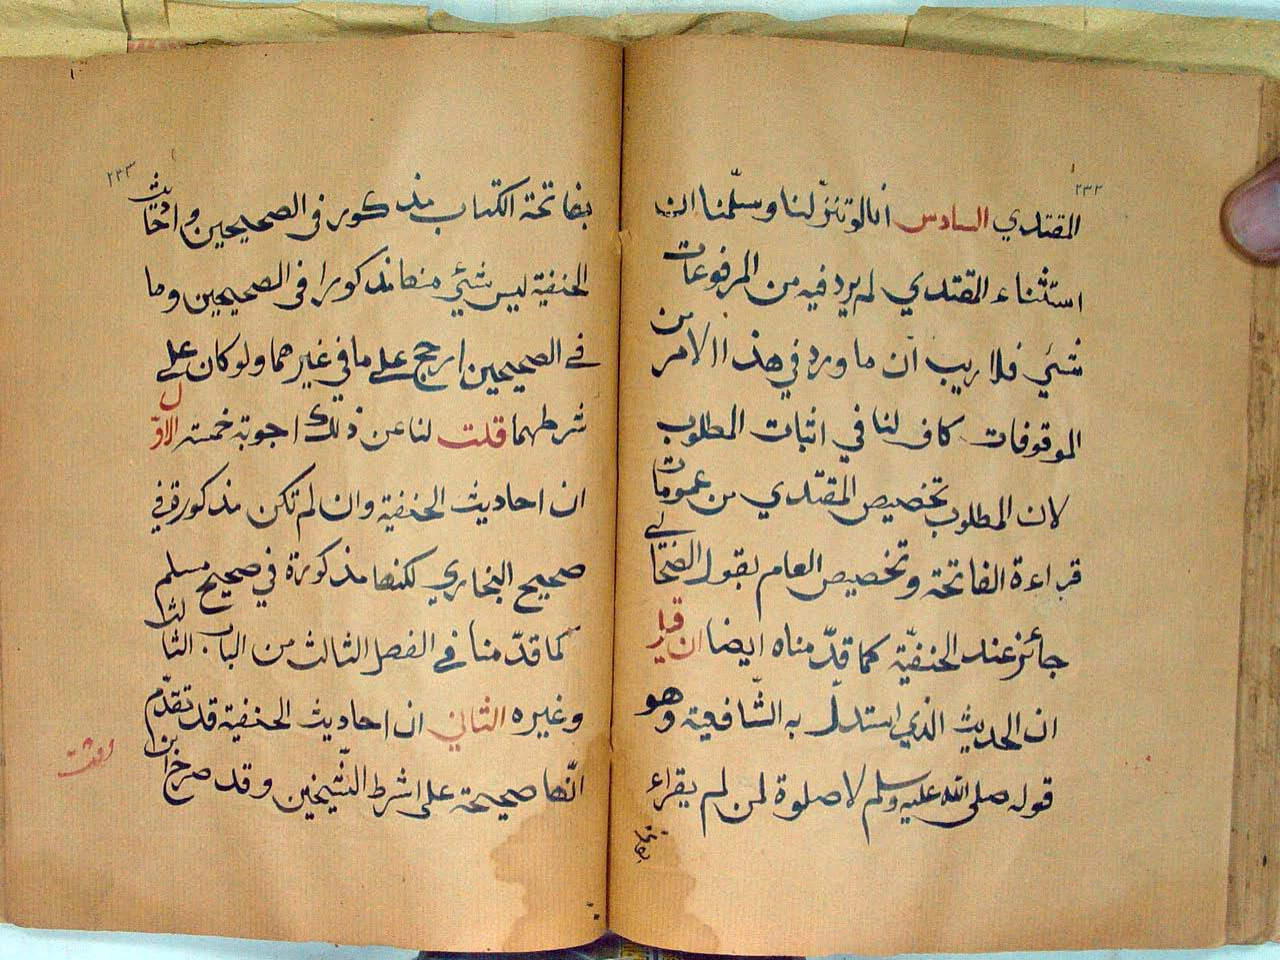 ٢٣٢
المقتدي السادس انا لو تنزّلنا وسلّمنا ان
استثناء المقتدي لم يرد فيه من المرفوعات
شئي فلا ريب ان ما ورد في هذا الامر من
الموقوفات كاف لنا في اثبات المطلوب
لان المطلوب تخصيص المقتدي من عمومات
قراءة الفاتحة وتخصيص العام بقول الصحابي
جائز عند الحنفيّة كما قدّمناه ايضا ان قيل
ان الحديث الذي استدلّ به الشّافعية وهو
قوله صلى الله عليه وسلم لا صلوة لمن لم يقراء
بفاتحة
٢٣٣
بفاتحة الكتاب مذكور فى الصحيحين واحاديث
الحنفية ليس شئي منها مذكورا فى الصحيحين وما
في الصحيحين ارجح على ما في غيرهما ولو كان على
شرطهما قلت لنا عن ذلك اجوبة خمسة الاوّل
ان احاديث الحنفية وان لم تكن مذكورة في
صحيح البخاري لكنها مذكورة في صحيح مسلم
كما قدّمنا في الفصل الثالث من الباب الثالث
وغيره الثاني ان احاديث الحنفية قد تقدّم
انّها صحيحة على شرط الشّيخين وقد صرح ابن